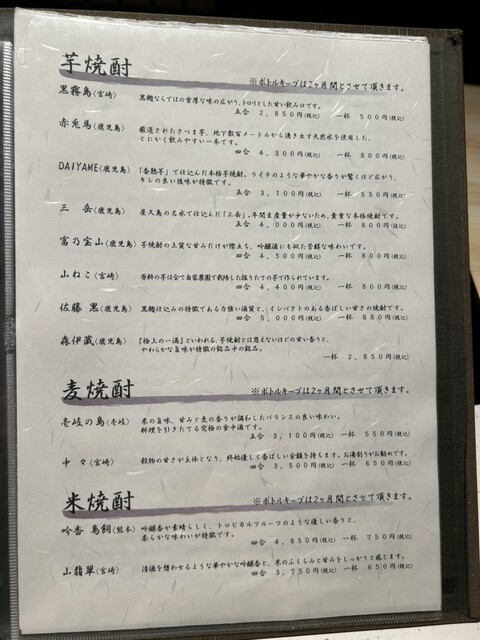 芋焼酎
※ボトルキープは2ヶ月間とさせて頂きます。
黒霧島(宮崎) 黒麹ならではの重厚な味の広がり、トロリとした甘い飲み口です。
五合 2,850円(税込) 一杯 500円(税込)
赤兎馬(鹿児島) 厳選されたさつま芋、地下数百メートルから湧き出す天然水を使用した、
とにかく飲みやすい一本です。
四合 4,300円(税込) 一杯 800円(税込)
DAIYAME(鹿児島) 「香熟芋」で仕込んだ本格芋焼酎。ライチのような華やかな香りが驚くほど広がり、
キレの良い後味が特徴です。
五合 3,100円(税込) 一杯 550円(税込)
三 岳(鹿児島) 屋久島の名水で仕込んだ「三岳」。年間生産量が少ないため、貴重な本格焼酎です。
五合 4,000円(税込) 一杯 800円(税込)
富乃宝山(鹿児島) 芋焼酎の上質な甘みだけが際立ち、吟醸酒にも似た芳醇な味わいです。
四合 4,500円(税込) 一杯 800円(税込)
山ねこ(宮崎) 原料の芋は全て自家農園で栽培した掘りたての芋で作られています。
四合 4,400円(税込) 一杯 800円(税込)
佐藤 黒(鹿児島) 黒麹仕込みの特徴である力強い酒質と、インパクトのある香ばしい甘さの焼酎です。
四合 5,000円(税込) 一杯 880円(税込)
森伊蔵(鹿児島) 『極上の一滴』といわれる、芋焼酎とは思えないほどの甘い香りと、
やわらかな旨味が特徴の銘品中の銘品。
一杯 2,850円(税込)
麦焼酎
※ボトルキープは2ヶ月間とさせて頂きます。
壱岐の島(壱岐) 米の旨味、甘みと麦の香りが調和したバランスの良い味わい。
料理を引きたてる究極の食中酒です。
五合 3,100円(税込) 一杯 550円(税込)
中々(宮崎) 穀物の甘さが主体となり、終始優しく香ばしい余韻を持ちます。お湯割りがお勧めです。
四合 3,500円(税込) 一杯 650円(税込)
米焼酎
※ボトルキープは2ヶ月間とさせて頂きます。
吟香 鳥飼(熊本) 吟醸香が素晴らしく、トロピカルフルーツのような優しい香りと、
柔らかな味わいが特徴です。
四合 4,850円(税込) 一杯 750円(税込)
山翡翠(宮崎) 清酒を想わせるような華やかな吟醸香と、米のふくらみと甘みをしっかりと感じます。
四合 3,750円(税込) 一杯 650円(税込)